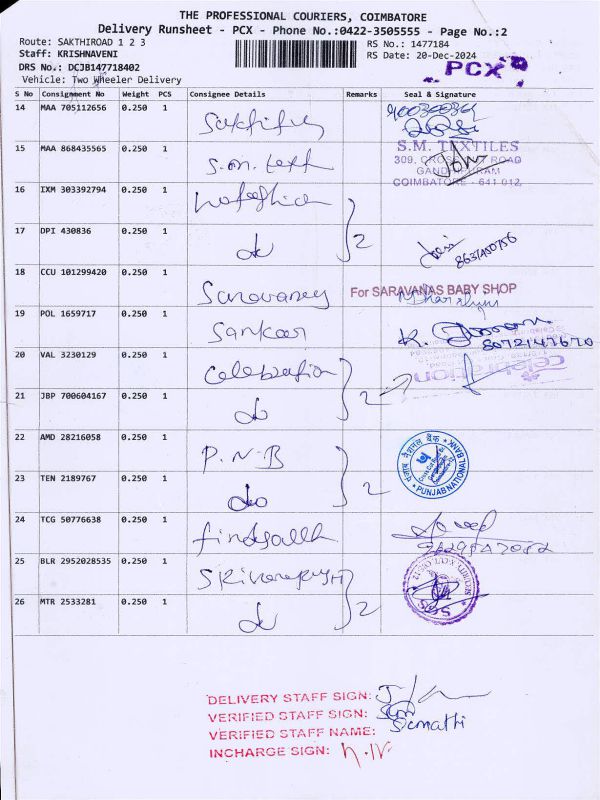 THE PROFESSIONAL COURIERS, COIMBATORE
Delivery Runsheet - PCX - Phone No.:0422-3505555 - Page No.:2
Route: SAKTHIROAD 1 2 3
RS No.: 1477184
Staff: KRISHNAVENI
RS Date: 20-Dec-2024
DRS No.: DCJB147718402
PCX
Vehicle: Two Wheeler Delivery
S No Consignment No Weight PCS Consignee Details Remarks Seal & Signature
14 MAA 705112656 0.250 1
15 MAA 868435565 0.250 1 S.m. text
S.M. TEXTILES
309, CROSS CUT ROAD
GANDHIPURAM
COIMBATORE - 641 012.
16 IXM 303392794 0.250 1
2
17 DPI 430836 0.250 1 do
8637450756
18 CCU 101299420 0.250 1
For SARAVANAS BABY SHOP
19 POL 1659717 0.250 1 Sankar
8072147670
20 VAL 3230129 0.250 1 Celebration
celebration
2
21 JBP 700604167 0.250 1 do
22 AMD 28216058 0.250 1 P.N.B
PUNJAB NATIONAL BANK
पंजाब नैशनल बैंक
2
23 TEN 2189767 0.250 1 do
24 TCG 50776638 0.250 1
25 BLR 2952028535 0.250 1
2
26 MTR 2533281 0.250 1 do
DELIVERY STAFF SIGN:
VERIFIED STAFF SIGN:
VERIFIED STAFF NAME: Sumathi
INCHARGE SIGN: